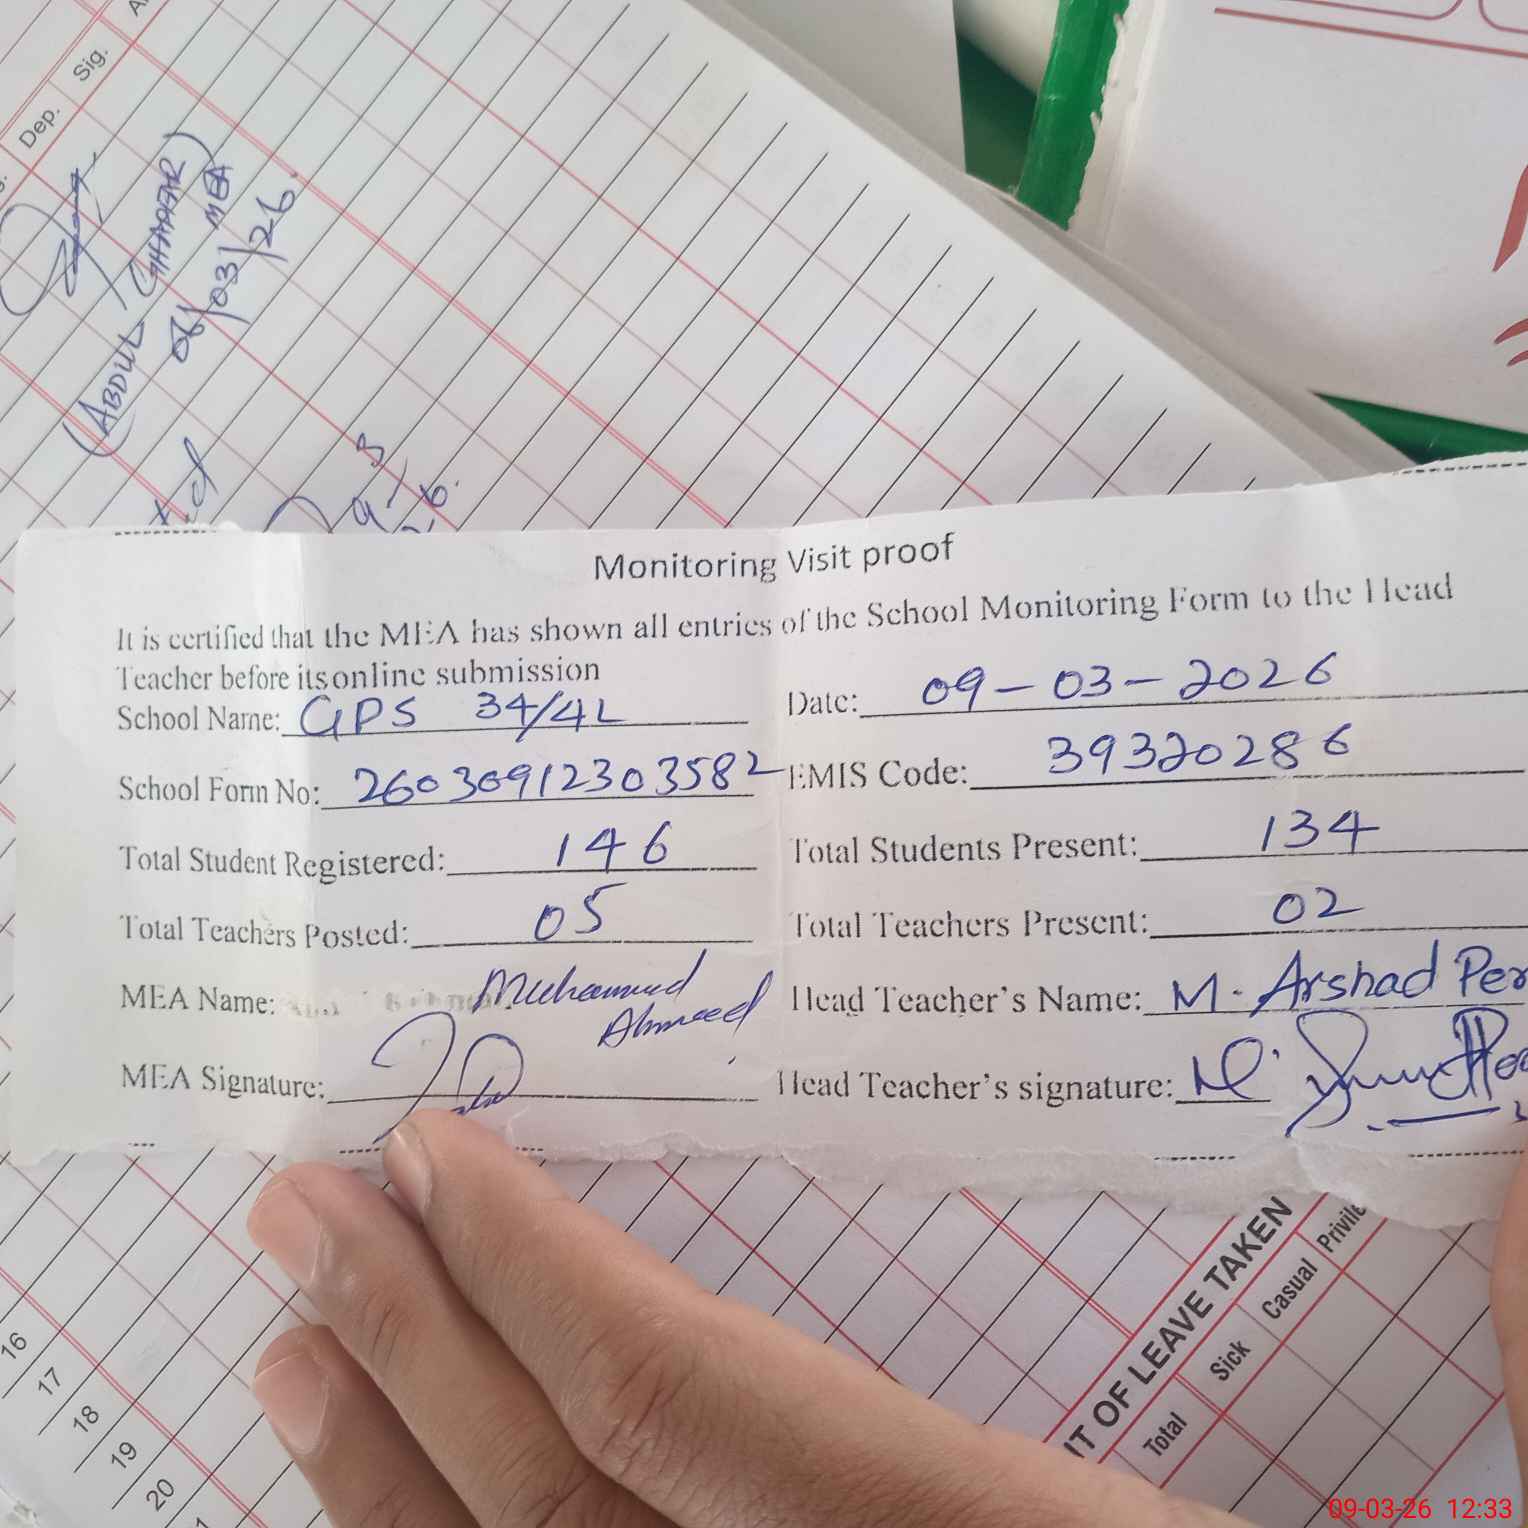 Dep. Sig.
(ABDUL GHAFFAR)
MEA
06/03/26.
9-3
Monitoring Visit proof
It is certified that the MEA has shown all entries of the School Monitoring Form to the Head
Teacher before its online submission
School Name: GPS 34/4L Date: 09-03-2026
School Form No: 260309122303582 EMIS Code: 39320286
Total Student Registered: 146 Total Students Present: 134
Total Teachers Posted: 05 Total Teachers Present: 02
MEA Name: Muhammad Ahmed Head Teacher's Name: M. Arshad Per
MEA Signature: Head Teacher's signature:
16
17
18
19
20
OF LEAVE TAKEN
Total Sick Casual Privile
09-03-26 12:33